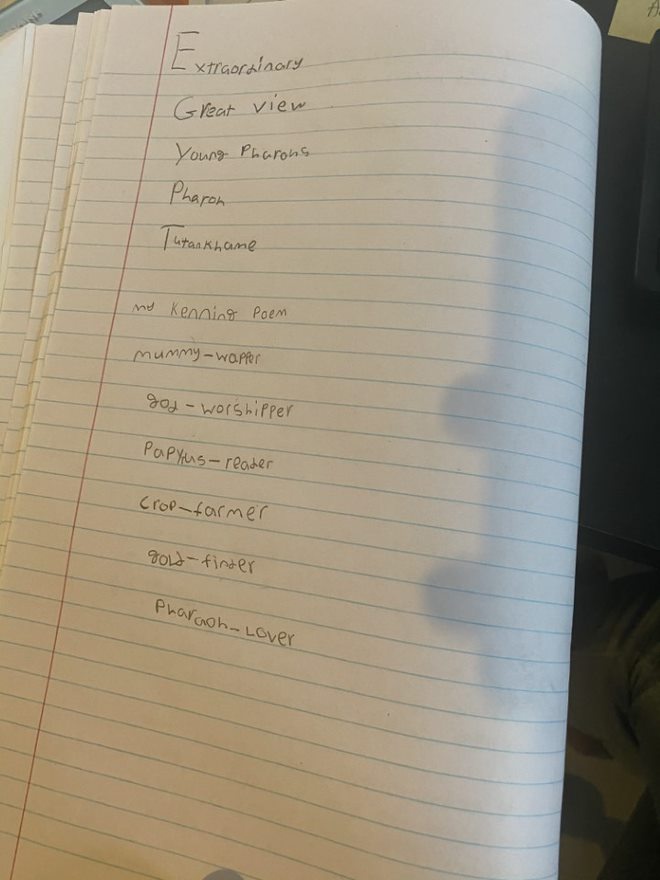 Extraordinary
Great view
Young Pharohs
Pharoh
Tutankhame
my Kenning Poem
mummy-wapper
god-worshipper
Papyrus-reader
crop-farmer
gold-finder
Pharaoh-Lover